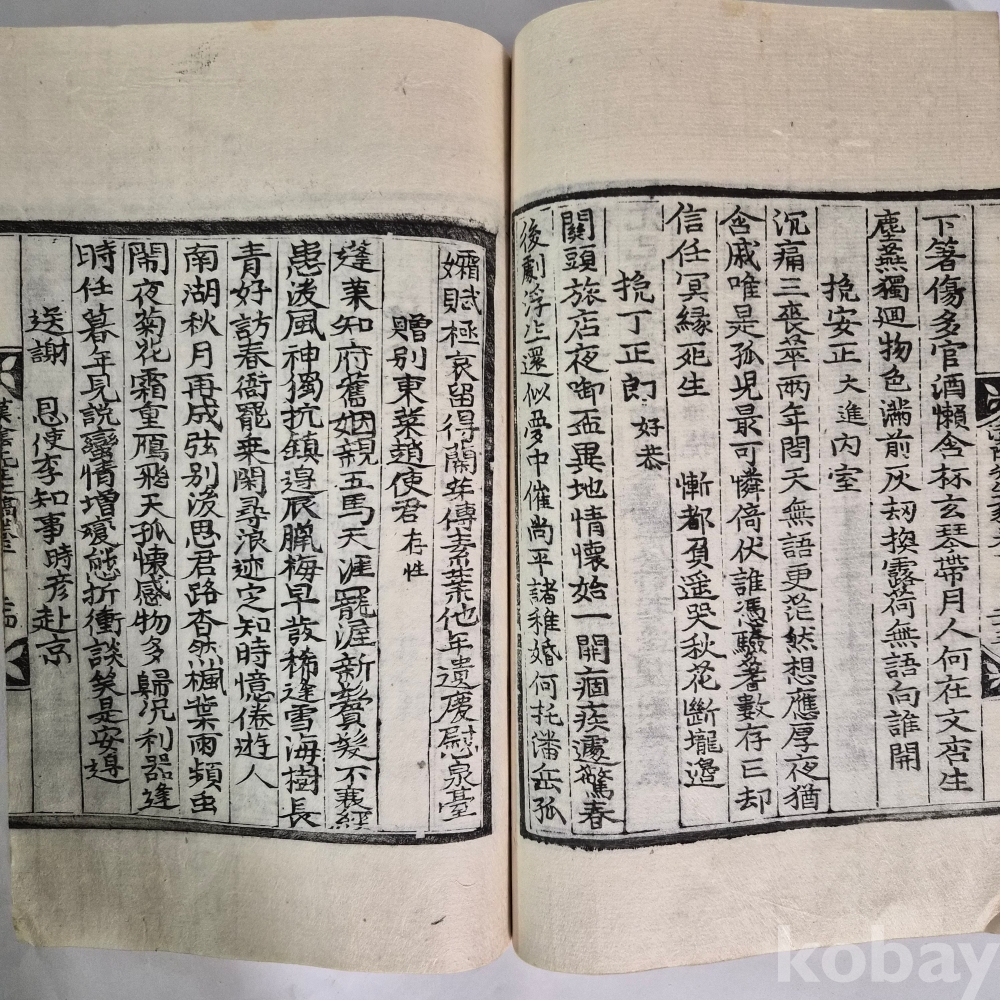 下箸傷多官酒懶含杯玄琴帶月人何在文店生
塵燕獨廻物色滿前灰刼換露荷無語向誰開
挽安正大進內室
沉痛三喪萃兩年問天無語更茫然想應厚夜猶
含戚唯是孤兒最可憐倚伏誰憑驗蓍數存亡却
信任冥緣死生慚都負遥哭秋花斷壠邉
挽丁正郎好恭
關頭旅店夜啣盃異地情懷始一開痼疾遽驚春
後劇浮生還似夢中催尚平諸稚婚何托潘岳孤
孀賦極哀留得蘭芽傳素業他年遺慶慰泉臺
贈別東萊趙使君存性
蓬萊知府舊姻親五馬天涯寵渥新鬢髮不衰經
患後風神獨抗鎮邉辰臘梅早發稀逢雪海樹長
青好訪春衙罷乘閑尋浪迹定知時憶倦遊人
南湖秋月再成弦別後思君路杳然楓葉雨頻虫
閙夜菊花霜重鴈飛天孤懷感物多歸況利器逢
時任暮年見說蠻情增瘦態折衝談笑是安邉
送謝恩使李知事時彦赴京
kobay